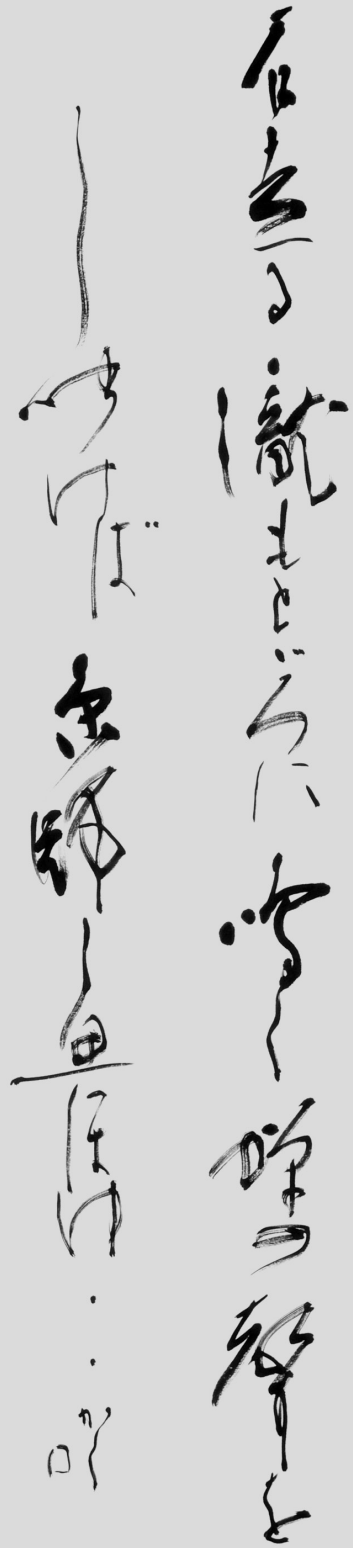 石走る瀧もとゞろに鳴く蝉の聲を
し聞けば京師し思ほゆ